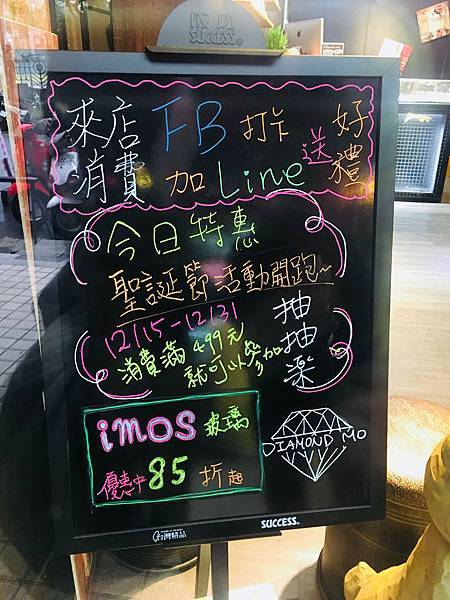 成功
SUCCESS®
來店 FB 打卡 送 好禮
消費 加 Line
今日特惠
聖誕節活動開跑~
12/15-12/31
消費滿499元
就可以參加
抽抽樂
imos 玻璃
優惠中 85 折起
DIAMOND MO
台灣精品
SUCCESS®